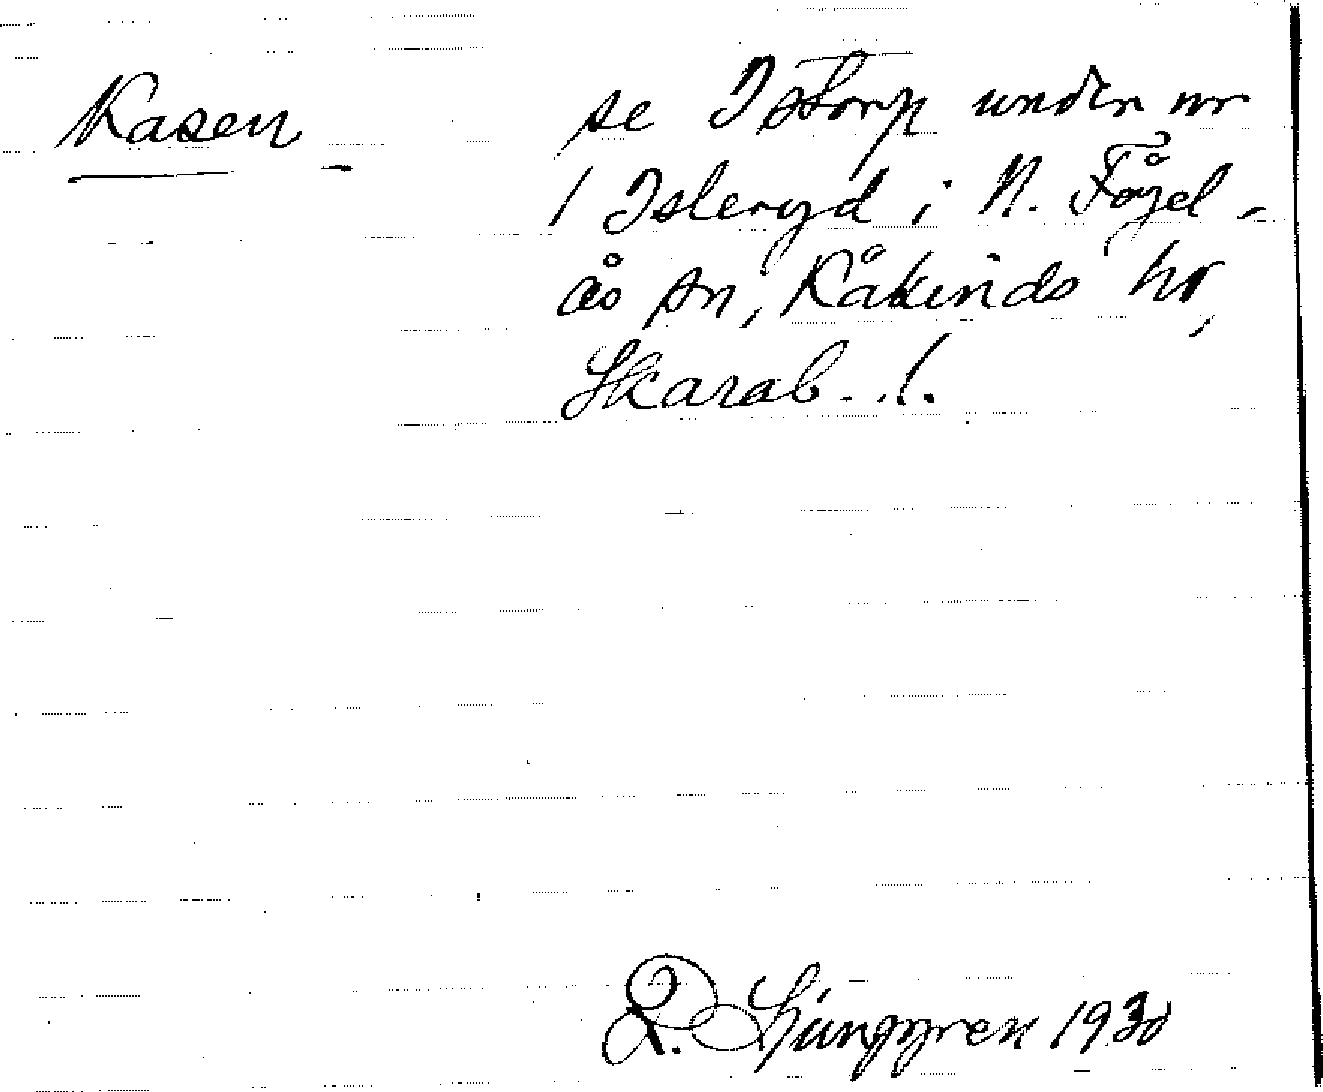 Kasen
se Istorp under nr
1 Isleryd i N. Fågel-
ås sn, Kåkinds hr,
Skarab. l.
R. Ljunggren 1930